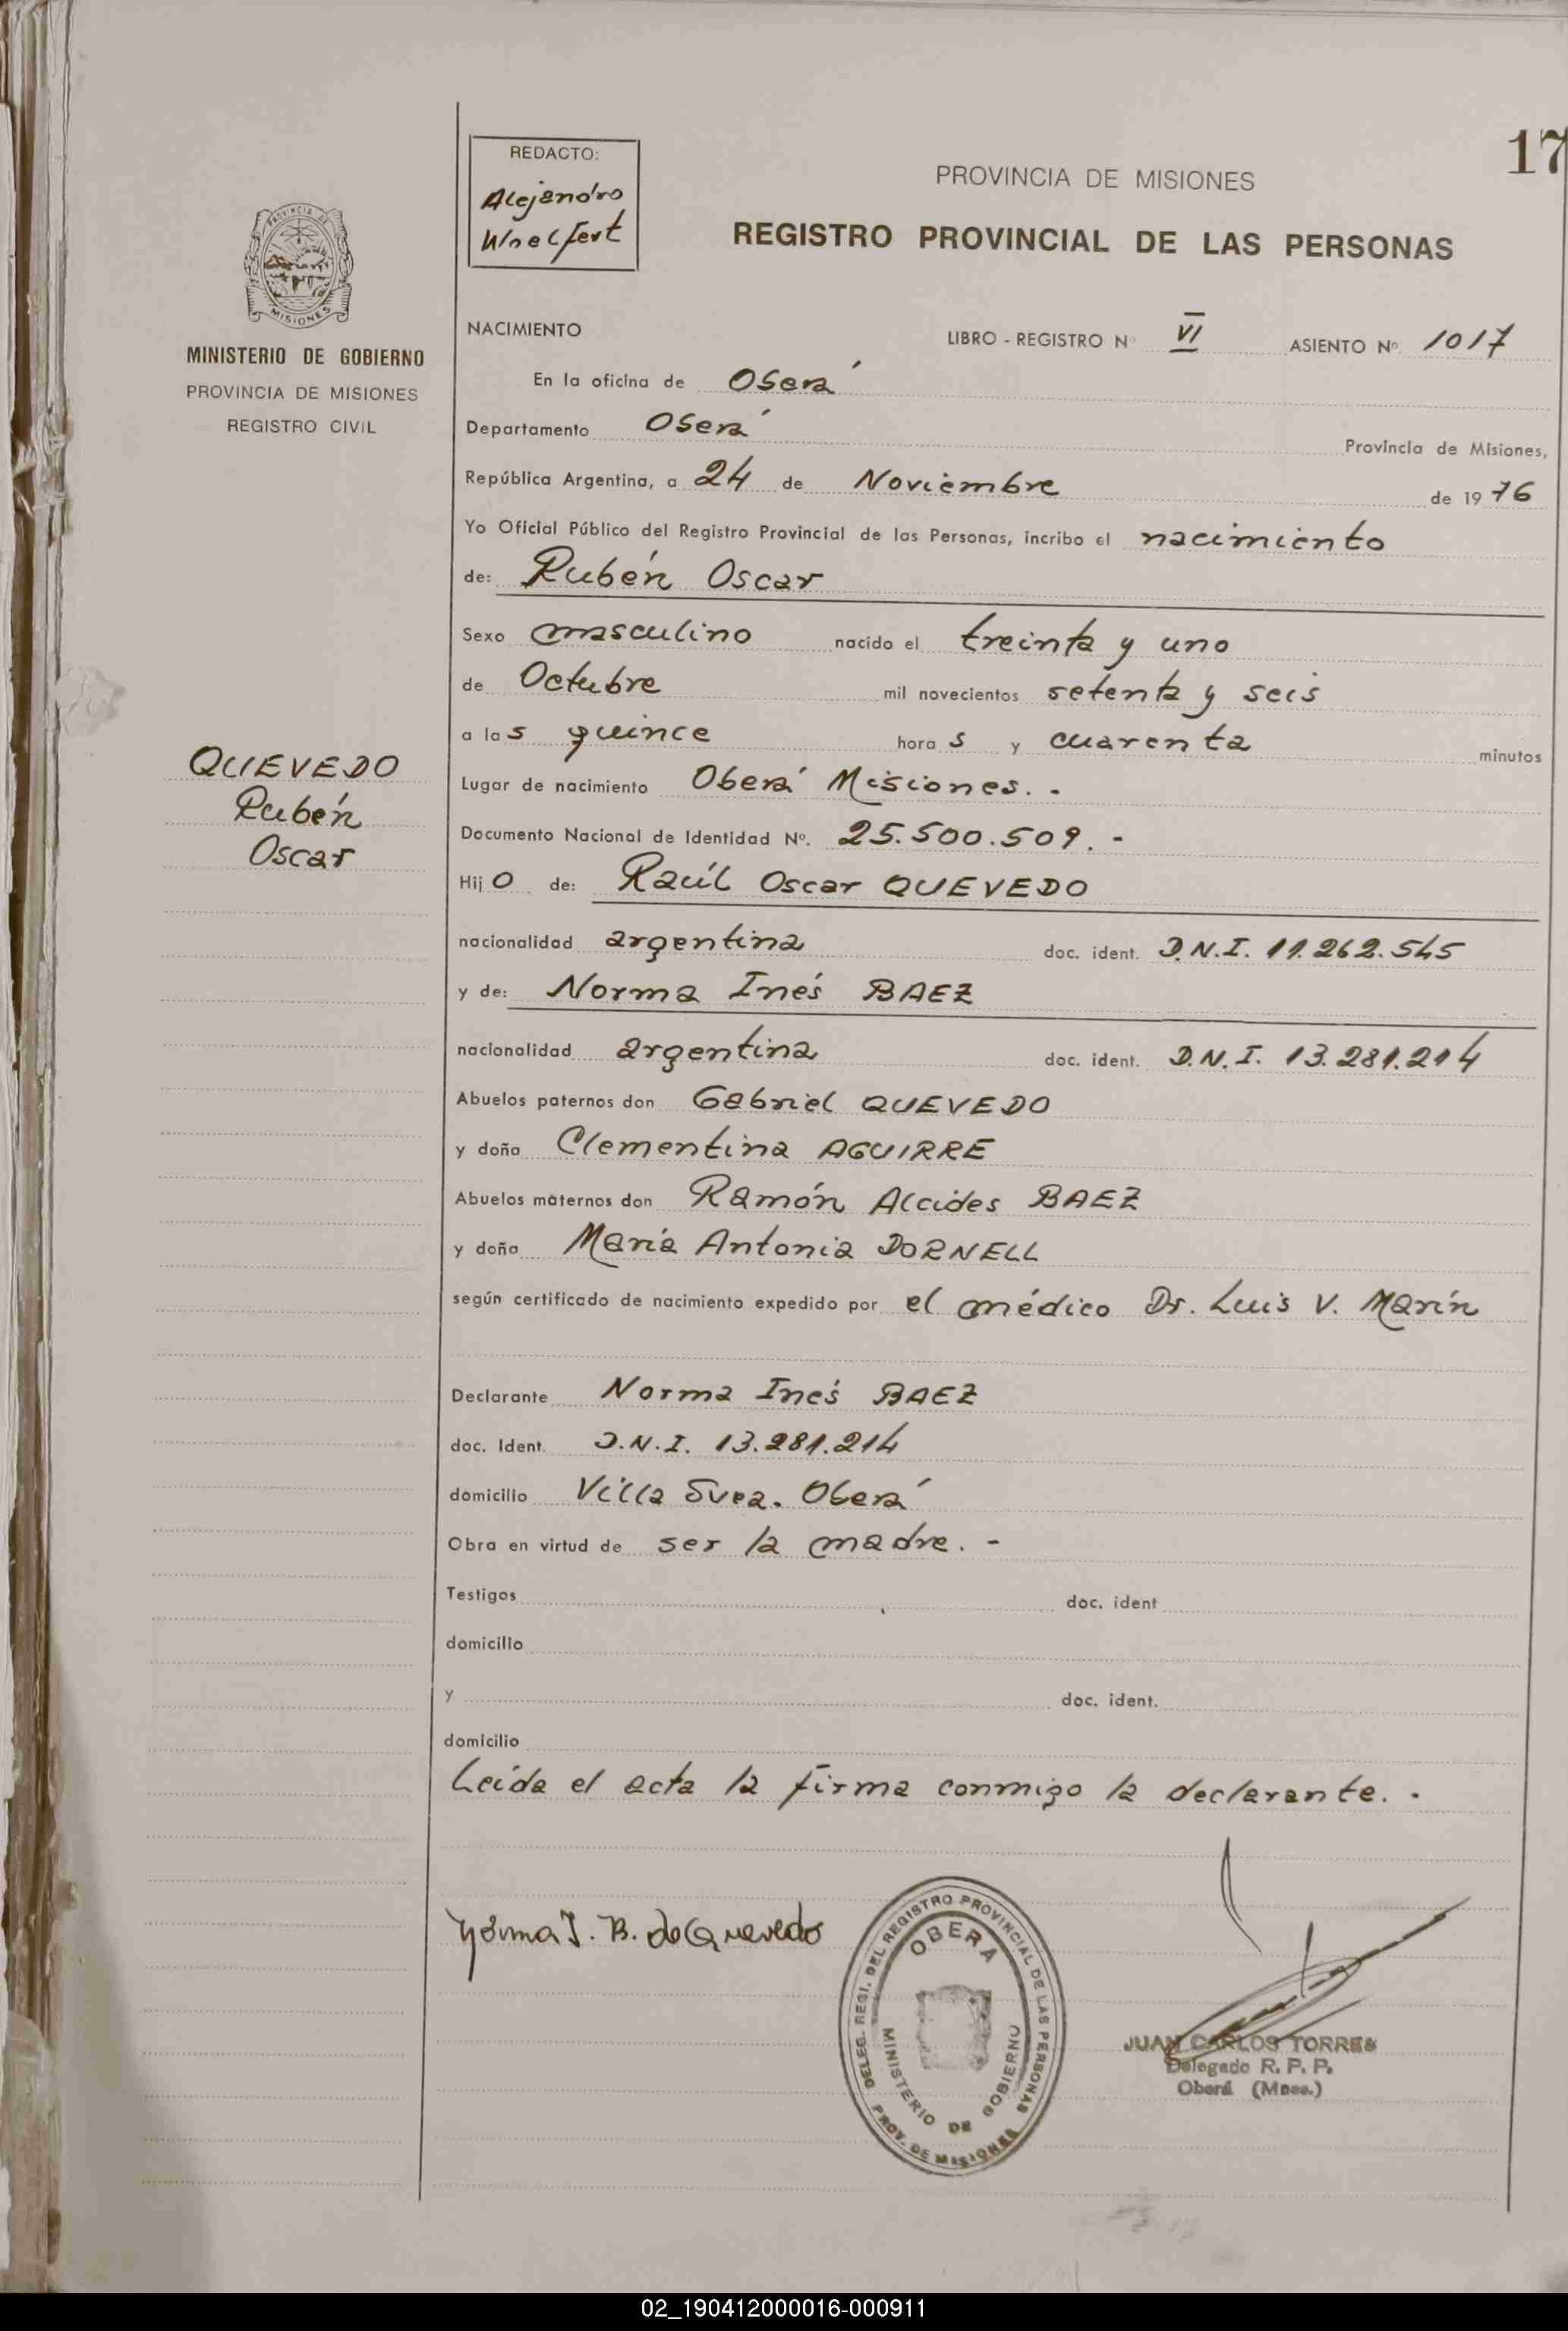 17
REDACTO:
Alejandro
Woelfert
PROVINCIA DE MISIONES
REGISTRO PROVINCIAL DE LAS PERSONAS
PROVINCIA DE
MISIONES
MINISTERIO DE GOBIERNO
PROVINCIA DE MISIONES
REGISTRO CIVIL
NACIMIENTO LIBRO - REGISTRO N° VI ASIENTO Nº 1017
En la oficina de Oberá
Departamento Oberá Provincia de Misiones,
República Argentina, a 24 de Noviembre de 1976
Yo Oficial Público del Registro Provincial de las Personas, incribo el nacimiento
de: Rubén Oscar
Sexo masculino nacido el treinta y uno
de Octubre mil novecientos setenta y seis
a las quince horas y cuarenta minutos
QUEVEDO
Rubén
Oscar
Lugar de nacimiento Oberá Misiones. -
Documento Nacional de Identidad Nº. 25.500.509. -
Hijo de: Raúl Oscar QUEVEDO
nacionalidad argentina doc. ident. D.N.I. 11.262.545
y de: Norma Inés BAEZ
nacionalidad argentina doc. ident. D.N.I. 13.281.214
Abuelos paternos don Gabriel QUEVEDO
y doña Clementina AGUIRRE
Abuelos maternos don Ramón Alcides BAEZ
y doña María Antonia DORNELL
según certificado de nacimiento expedido por el médico Dr. Luis V. Marín
Declarante Norma Inés BAEZ
doc. Ident. D.N.I. 13.281.214
domicilio Villa Svea. Oberá
Obra en virtud de ser la madre. -
Testigos doc. ident
domicilio
y doc. ident.
domicilio
Leída el acta la firma conmigo la declarante. -
Norma I. B. de Quevedo
DELEG. REGI. DEL REGISTRO PROVINCIAL DE LAS PERSONAS
OBERA
MINISTERIO DE GOBIERNO
PROV. DE MISIONES
JUAN CARLOS TORRES
Delegado R. P. P.
Oberá (Mnes.)
02_190412000016-000911